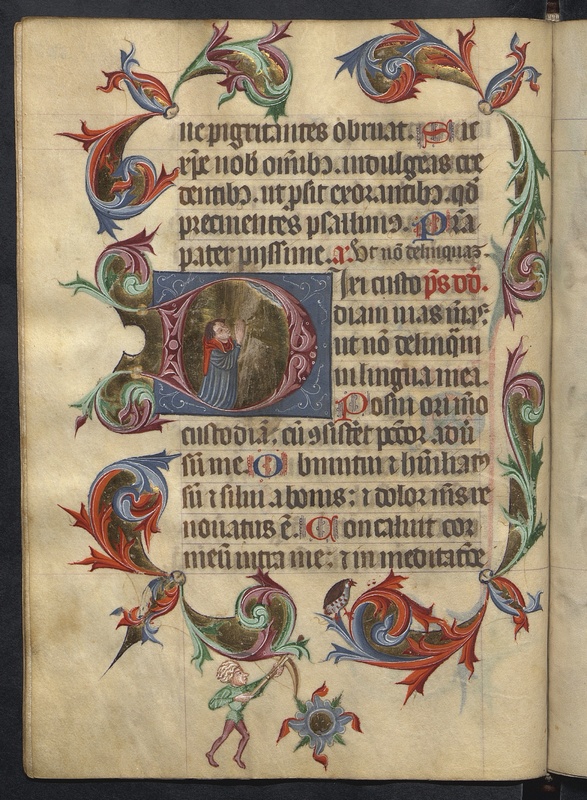 ne pigritantes obruat. Sic
xp̄e nob̄ om̄ibꝫ. indulgeas cre
dentibꝫ. ut p̄sit exorantibꝫ. qd̄
precinentes psallimꝰ. P̄ra
pater piissime. a̅. Ut nō delinquaꝫ
Dixi custo p̄s dd̄.
diam uias m̄as
ut nō delinq̄m
in lingua mea.
Posui ori m̄o
custodiā. cū ꝯsistet pctōr adū
sū me. Obmutui ⁊ hūiliatꝰ
sū ⁊ silui a bonis: ⁊ dolor m̄s re
nouatus ē. Concaluit cor
meū intra me: ⁊ in meditac̄óe